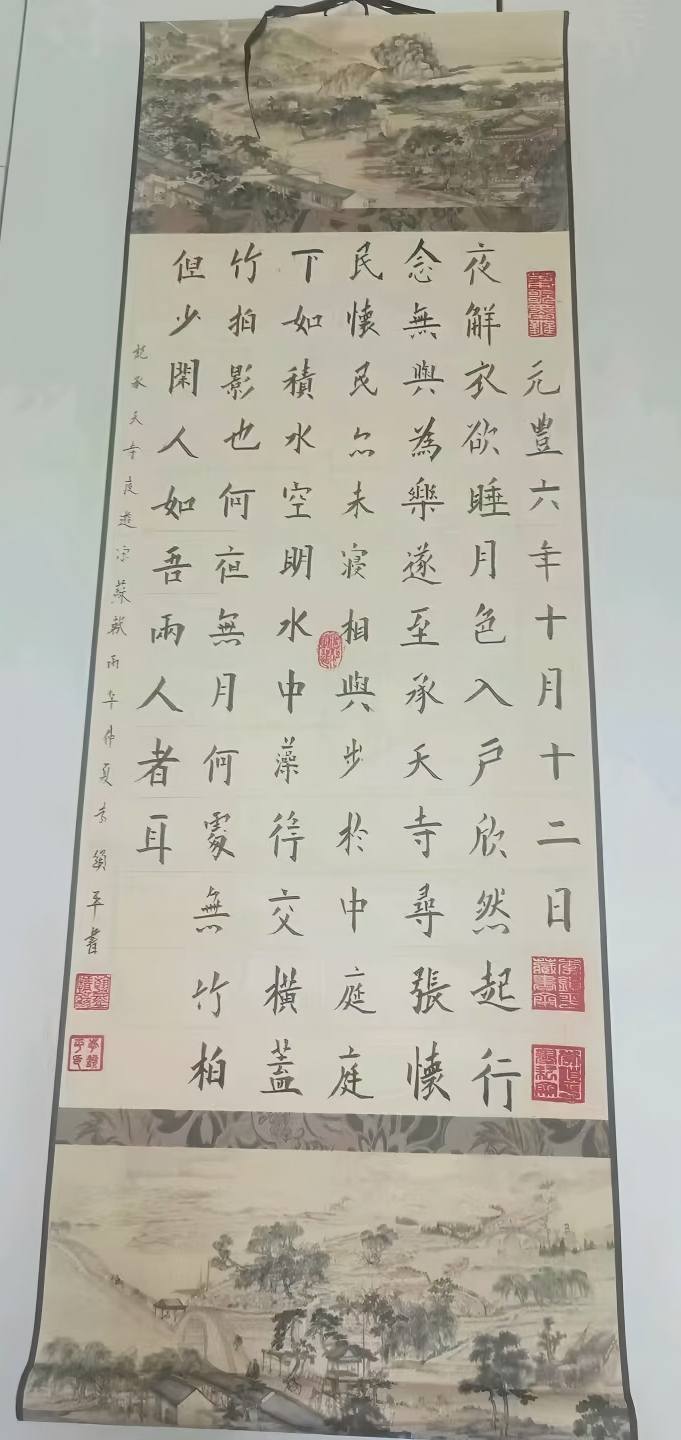 元豐六年十月十二日
夜觧衣欲睡月色入戶欣然起行
念無與為樂遂至承天寺尋張懷
民懷民亦未寢相與步於中庭庭
下如積水空明水中藻荇交橫蓋
竹柏影也何夜無月何處無竹柏
但少閑人如吾兩人者耳
記承天寺夜遊宋蘇軾丙午仲夏平書